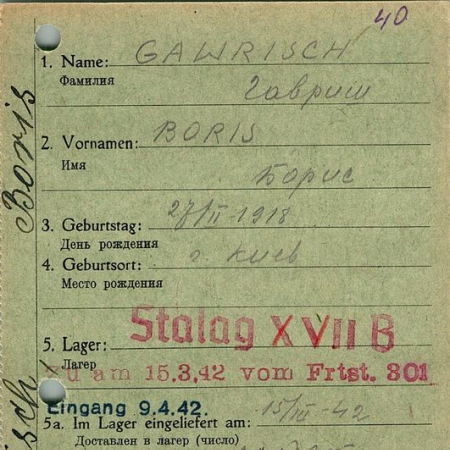 40
1. Name: GAWRISCH
Фамилия Гавриш
2. Vornamen: BORIS
Имя Борис
3. Geburtstag: 27/II-1918
День рождения
4. Geburtsort: г. Киев
Место рождения
5. Lager: Stalag XVII B
Лагер
Zu am 15.3.42 vom Frtst. 301
Eingang 9.4.42.
5a. Im Lager eingeliefert am: 15/III-42
Доставлен в лагер (число)
Boris